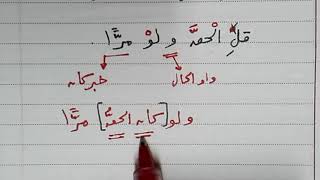 قلِ الْحقَّ ولوْ مرًّا.
واو الحال خبر كان
ولو [كان الحقُّ] مرًّا